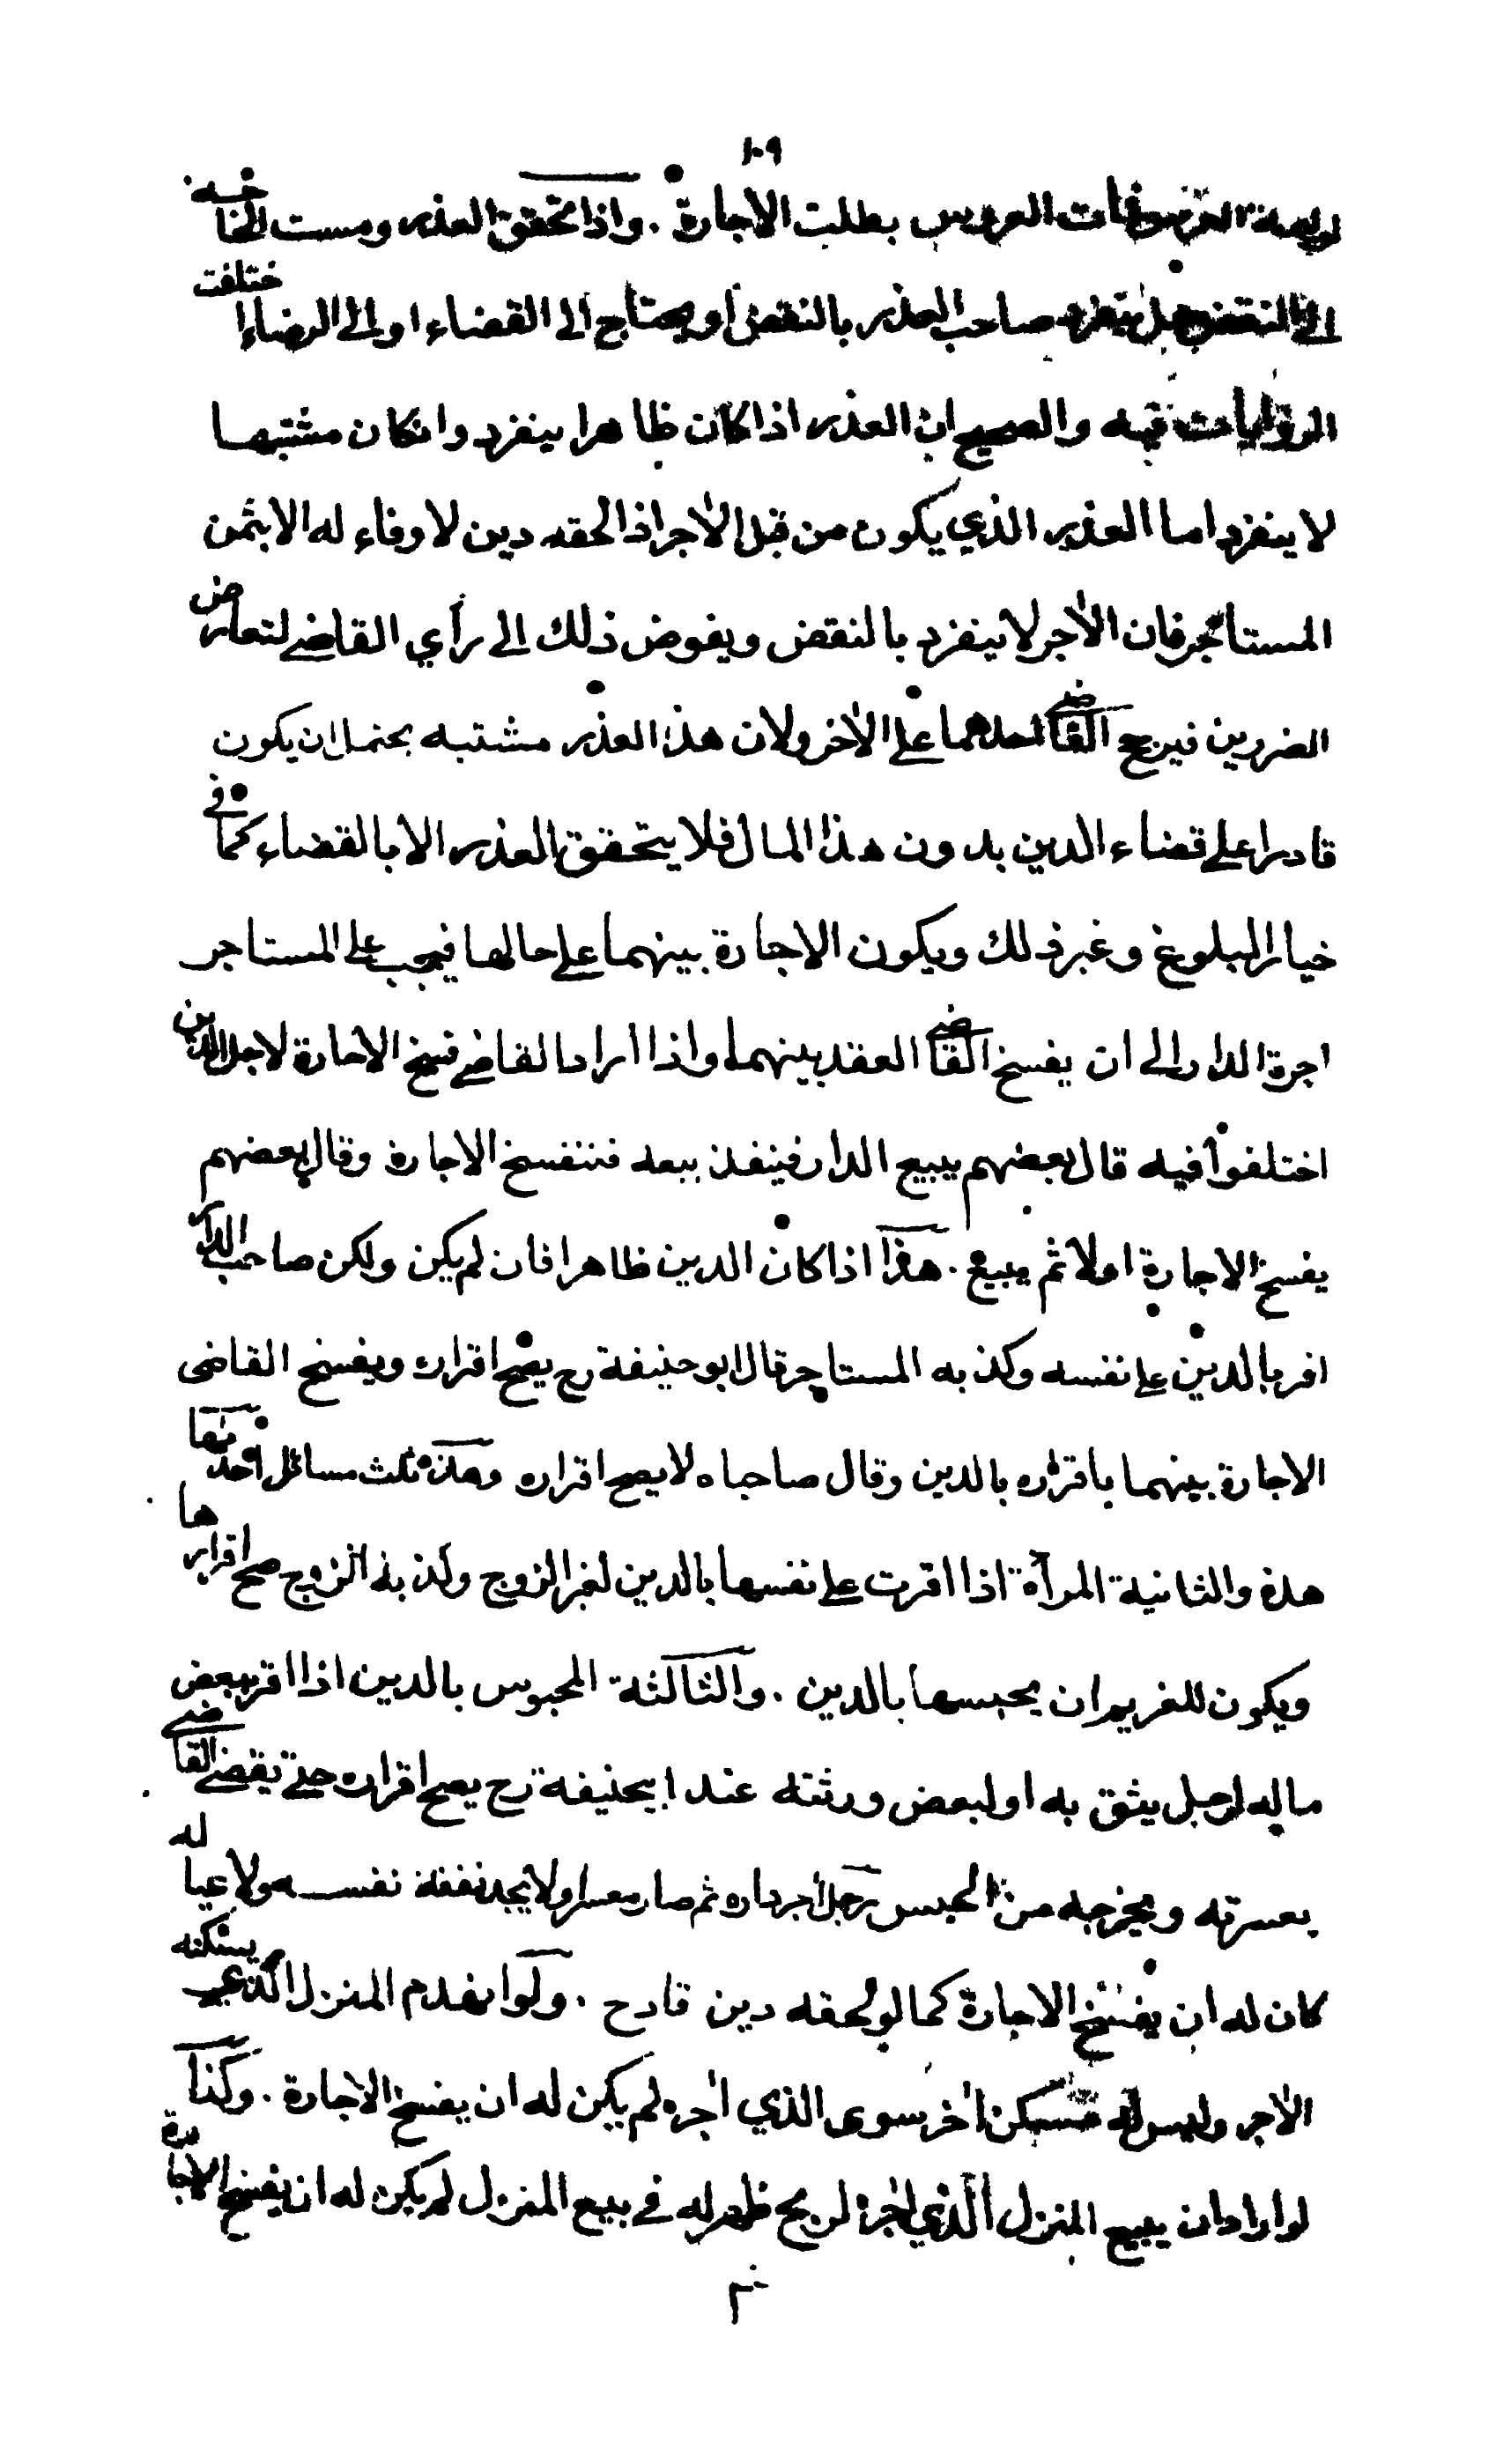 ١٠٩
لوليمة العرس فمات العروس بطلت الاجارة . واذا تحقق العذر ومست الحاجة
الى النقض هل يتفرد صاحب العذر بالنقض او يحتاج الى القضاء او الى الرضاء اختلفت
الروايات فيه والصحيح ان العذر اذا كان ظاهرا ينفرد وانكان مشتبها
لا ينفرد اما العذر الذي يكون من قبل الاٰجر اذا لحقه دين لا وفاء له الا بثمن
المستاجر فان الاٰجر لا ينفرد بالنقض ويفوض ذلك الى رأي القاضي لتعارض
الضررين فيرجح القاضي احدهما على الاٰخر ولان هذا العذر مشتبه يحتمل ان يكون
قادرا على قضاء الدين بدون هذا المال فلا يتحقق العذر الا بالقضاء كما في
خيار البلوغ وغير ذلك ويكون الاجارة بينهما على حالها فيجب على المستاجر
اجرة الدار الى ان يفسخ القاضي العقد بينهما واذا اراد القاضي فسخ الاجارة لاجل الدين
اختلفوا فيه قال بعضهم يبيع الدار فينفذ بيعه فتنفسخ الاجارة وقال بعضهم
يفسخ الاجارة اولا ثم يبيع . هذا اذا كان الدين ظاهرا فان لم يكن ولكن صاحب الدار
اقر بالدين على نفسه وكذبه المستاجر قال ابو حنيفة رح يصح اقراره ويفسخ القاضى
الاجارة بينهما باقراره بالدين وقال صاحباه لا يصح اقراره وهذه ثلث مسائل احدٰها
هذه والثانية المرأة اذا اقرت على نفسها بالدين لغير الزوج وكذبه الزوج صح اقرارها
ويكون للغريم ان يحبسها بالدين . والثالثة المحبوس بالدين اذا اقر ببعض
ماله لرجل يثق به او لبعض ورثته عند ابيحنيفة رح يصح اقراره حتى يقضي القاضي
بعسرته ويخرجه من الحبس رجل اٰجر داره ثم صار معسرا ولا يجد نفقة نفسه ولا عياله
كان له ان يفسخ الاجارة كما لو لحقه دين قادح . ولو انهدم المنزل الذي يسكنه
الاٰجر وليس له مسكن اٰخر سوى الذي اٰجره لم يكن له ان يفسخ الاجارة . وكذا
لو اراد ان يبيع المنزل الذي اٰجره لربح ظهر له في بيع المنزل لم يكن له ان يفسخ الاجارة